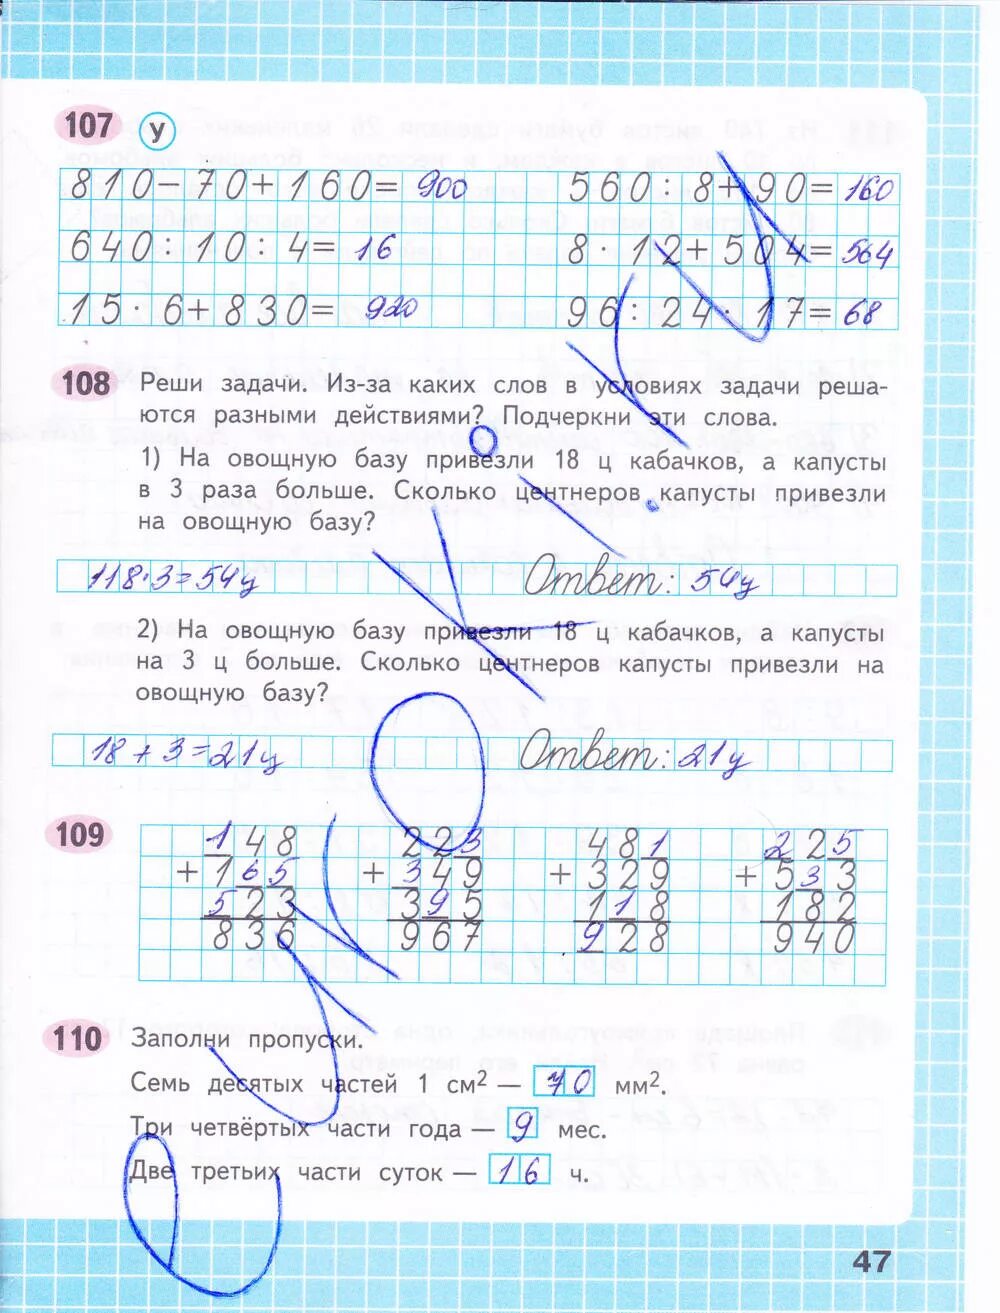 107 у
810−70+160=900 560:8+90=160
640:10:4=16 8·12+504=564
15·6+830=920 96:24·17=68
108 Реши задачи. Из-за каких слов в условиях задачи реша-
ются разными действиями? Подчеркни эти слова.
1) На овощную базу привезли 18 ц кабачков, а капусты
в 3 раза больше. Сколько центнеров капусты привезли
на овощную базу?
118·3=54ц Ответ: 54ц
2) На овощную базу привезли 18 ц кабачков, а капусты
на 3 ц больше. Сколько центнеров капусты привезли на
овощную базу?
18+3=21ц Ответ: 21ц
109 148 223 481 225
+165 +349 +329 +533
523 395 118 182
836 967 928 940
110 Заполни пропуски.
Семь десятых частей 1 см² — 70 мм².
Три четвёртых части года — 9 мес.
Две третьих части суток — 16 ч.
47